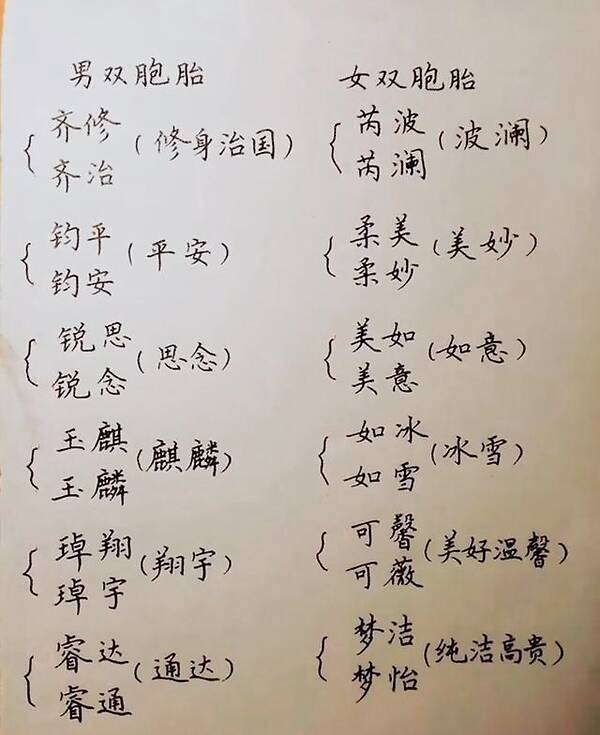 男双胞胎
齐修
齐治
(修身治国)
钧平
钧安
(平安)
锐思
锐念
(思念)
玉麒
玉麟
(麒麟)
琸翔
琸宇
(翔宇)
睿达
睿通
(通达)
女双胞胎
芮波
芮澜
(波澜)
柔美
柔妙
(美妙)
美如
美意
(如意)
如冰
如雪
(冰雪)
可馨
可薇
(美好温馨)
梦洁
梦怡
(纯洁高贵)